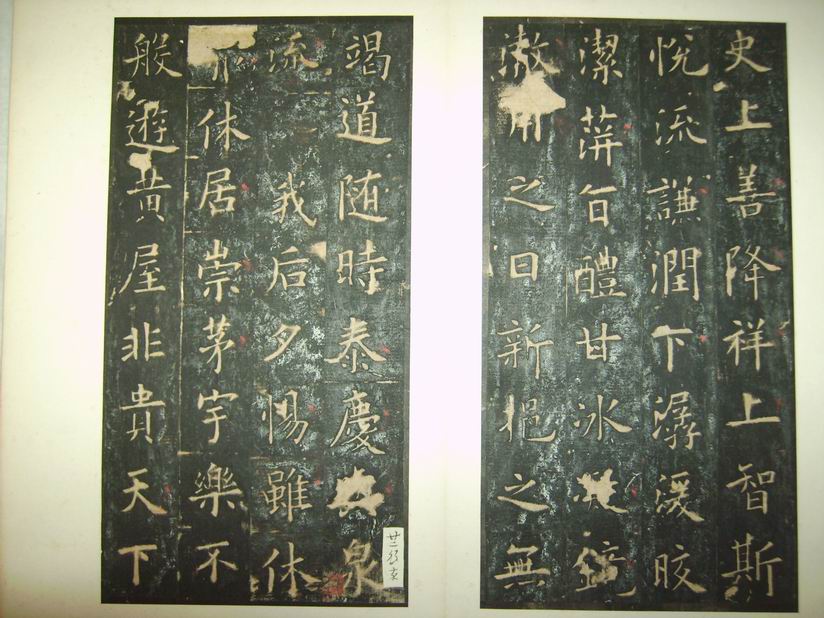 史上善降祥上智斯
悅流謙潤下潺湲皎
潔蓱旨醴甘冰凝鏡
澂用之日新挹之無
竭道随時泰慶泉
流我后夕惕雖休
休居崇茅宇樂不
般遊黃屋非貴天下